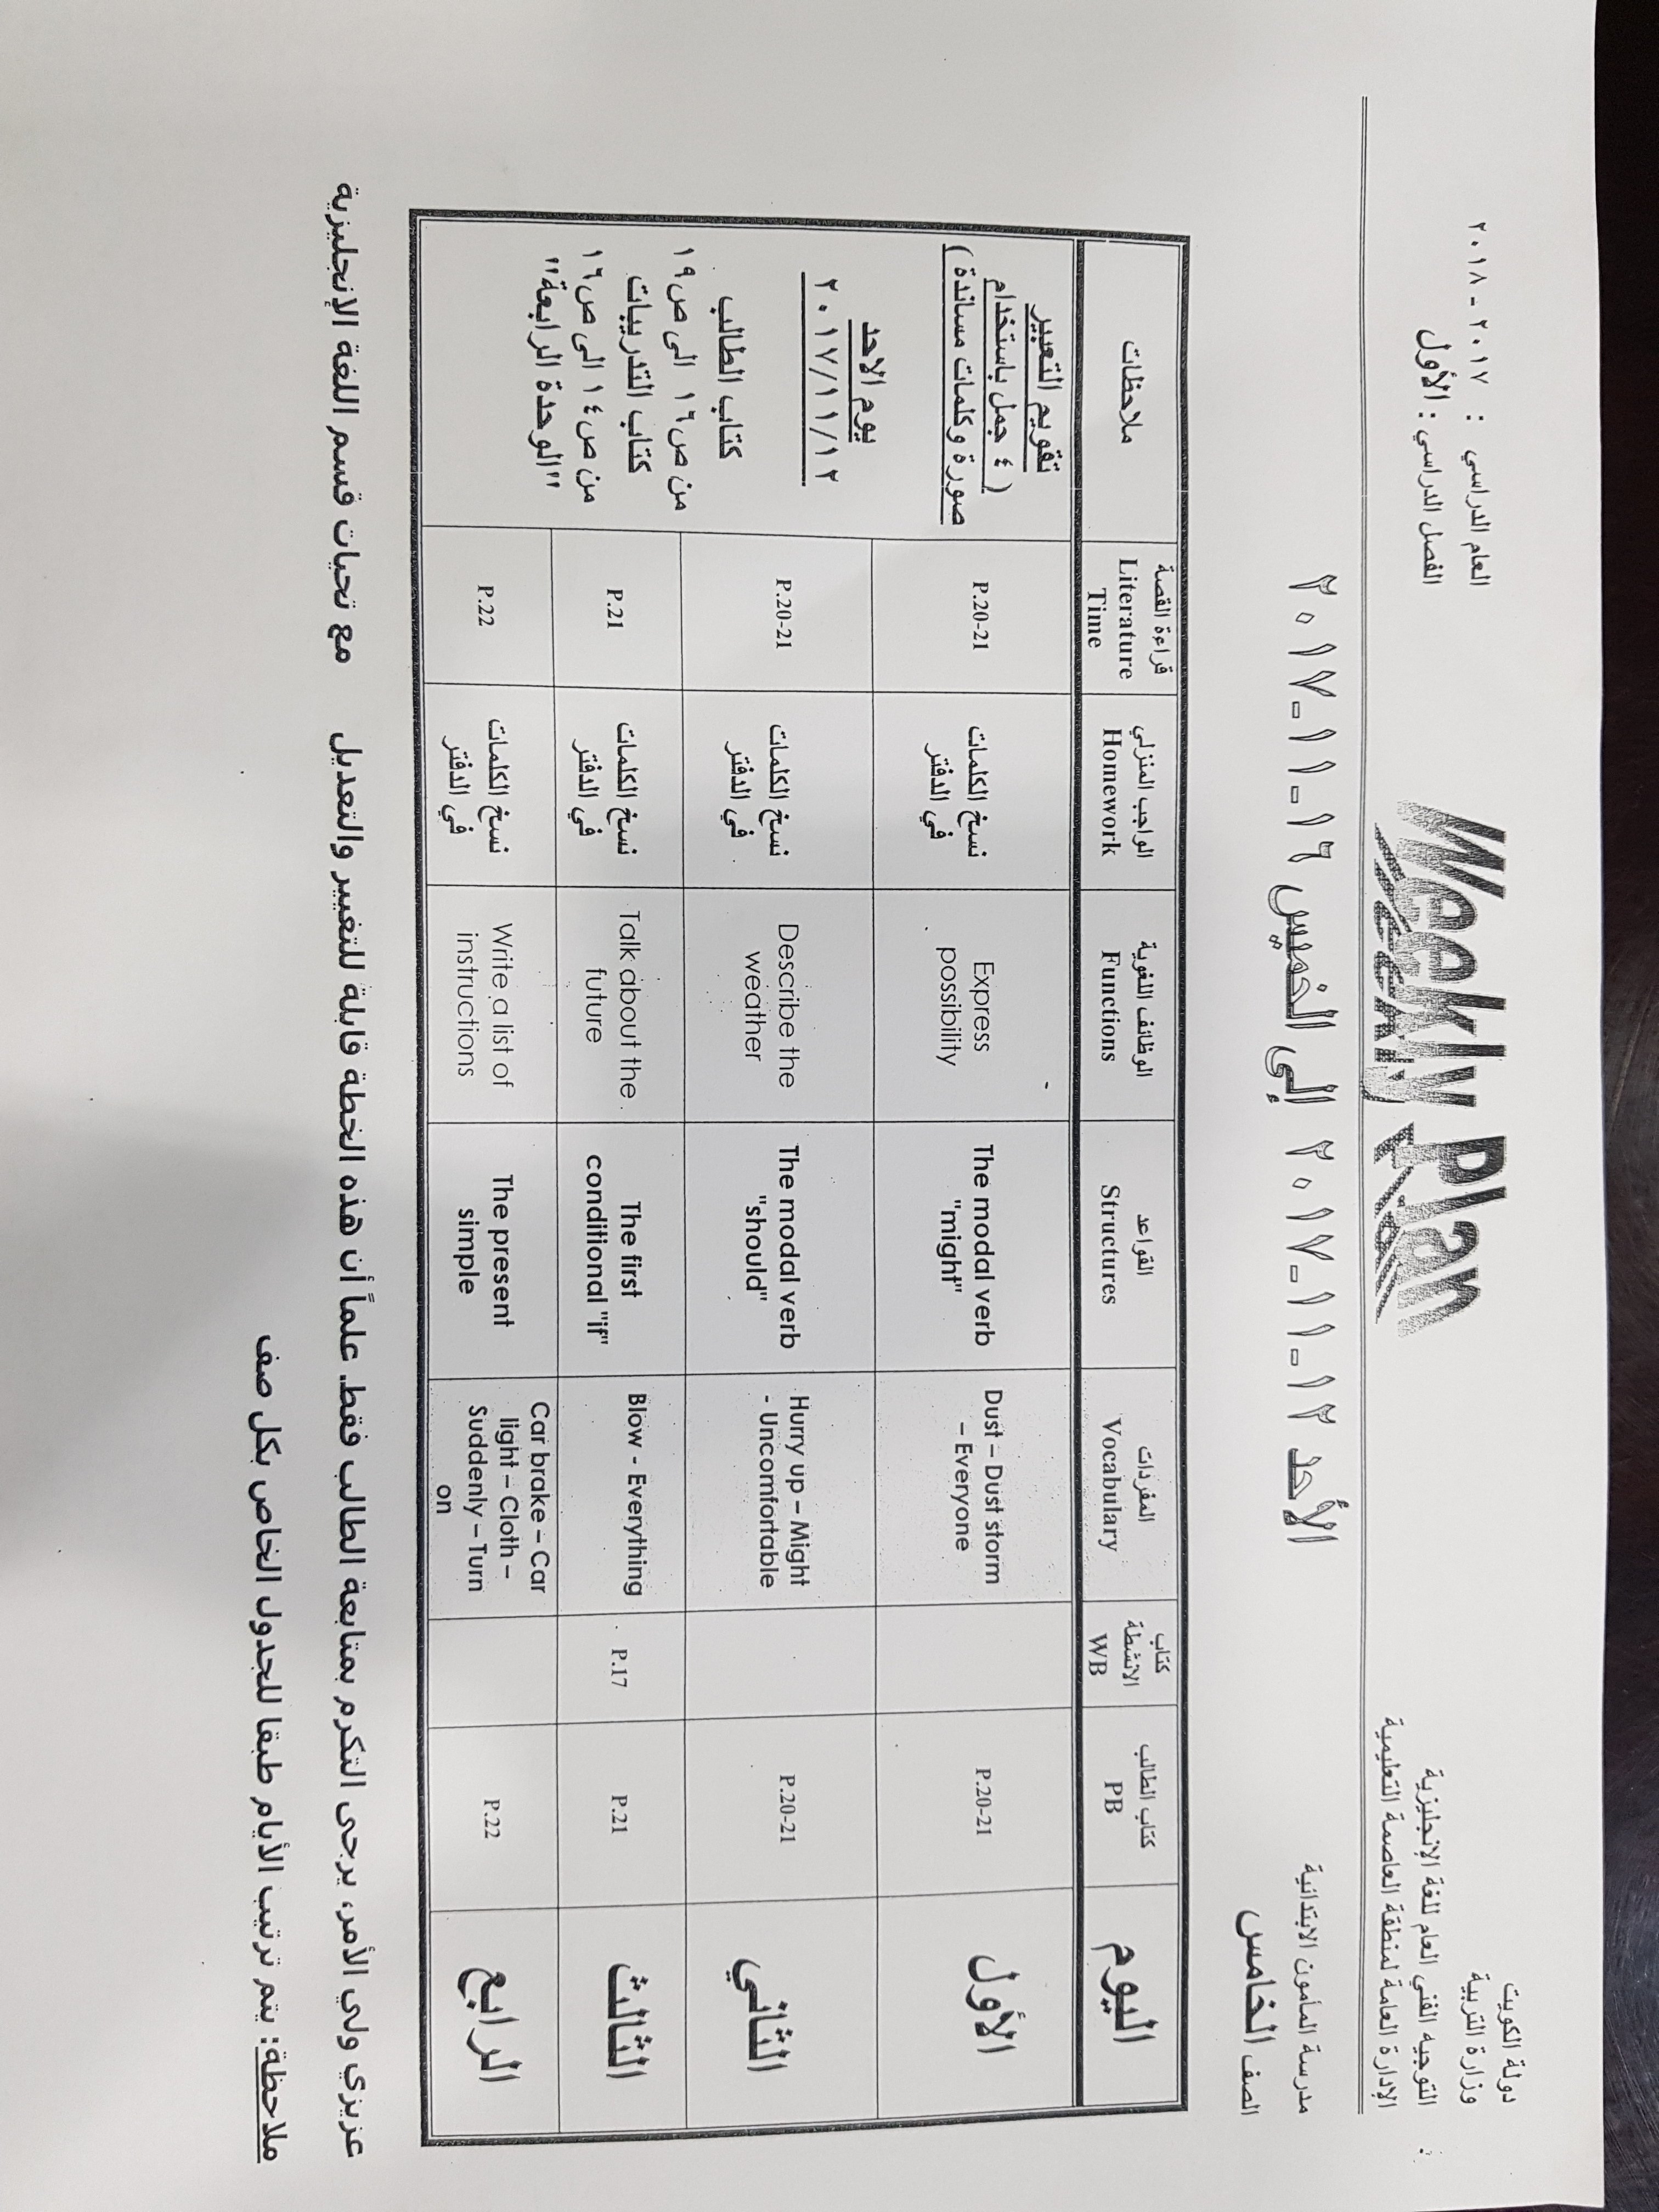 دولة الكويت
وزارة التربية
التوجيه الفني العام للغة الإنجليزية
الإدارة العامة لمنطقة العاصمة التعليمية
Weekly Plan
العام الدراسي : ٢٠١٧ - ٢٠١٨
الفصل الدراسي : الأول
مدرسة المأمون الابتدائية
الصف الخامس
الأحد ١٢-١١-٢٠١٧ إلى الخميس ١٦-١١-٢٠١٧
اليوم
كتاب الطالب
PB
كتاب
الانشطة
WB
المفردات
Vocabulary
القواعد
Structures
الوظائف اللغوية
Functions
الواجب المنزلي
Homework
قراءة القصة
Literature
Time
ملاحظات
الأول
P.20-21
Dust – Dust storm
– Everyone
The modal verb
"might"
Express
possibility
نسخ الكلمات
في الدفتر
P.20-21
الثاني
P.20-21
Hurry up – Might
- Uncomfortable
The modal verb
"should"
Describe the
weather
نسخ الكلمات
في الدفتر
P.20-21
الثالث
P.21
P.17
Blow - Everything
The first
conditional "if"
Talk about the
future
نسخ الكلمات
في الدفتر
P.21
الرابع
P.22
Car brake – Car
light – Cloth –
Suddenly – Turn
on
The present
simple
Write a list of
instructions
نسخ الكلمات
في الدفتر
P.22
تقويم التعبير
( ٤ جمل باستخدام
صورة وكلمات مساندة )
يوم الاحد
٢٠١٧/١١/١٢
كتاب الطالب
من ص١٦ الى ص١٩
كتاب التدريبات
من ص١٤ الى ص١٦
"الوحدة الرابعة"
عزيزي ولي الأمر، يرجى التكرم بمتابعة الطالب فقط. علماً أن هذه الخطة قابلة للتغيير والتعديل مع تحيات قسم اللغة الإنجليزية
ملاحظة: يتم ترتيب الأيام طبقا للجدول الخاص بكل صف